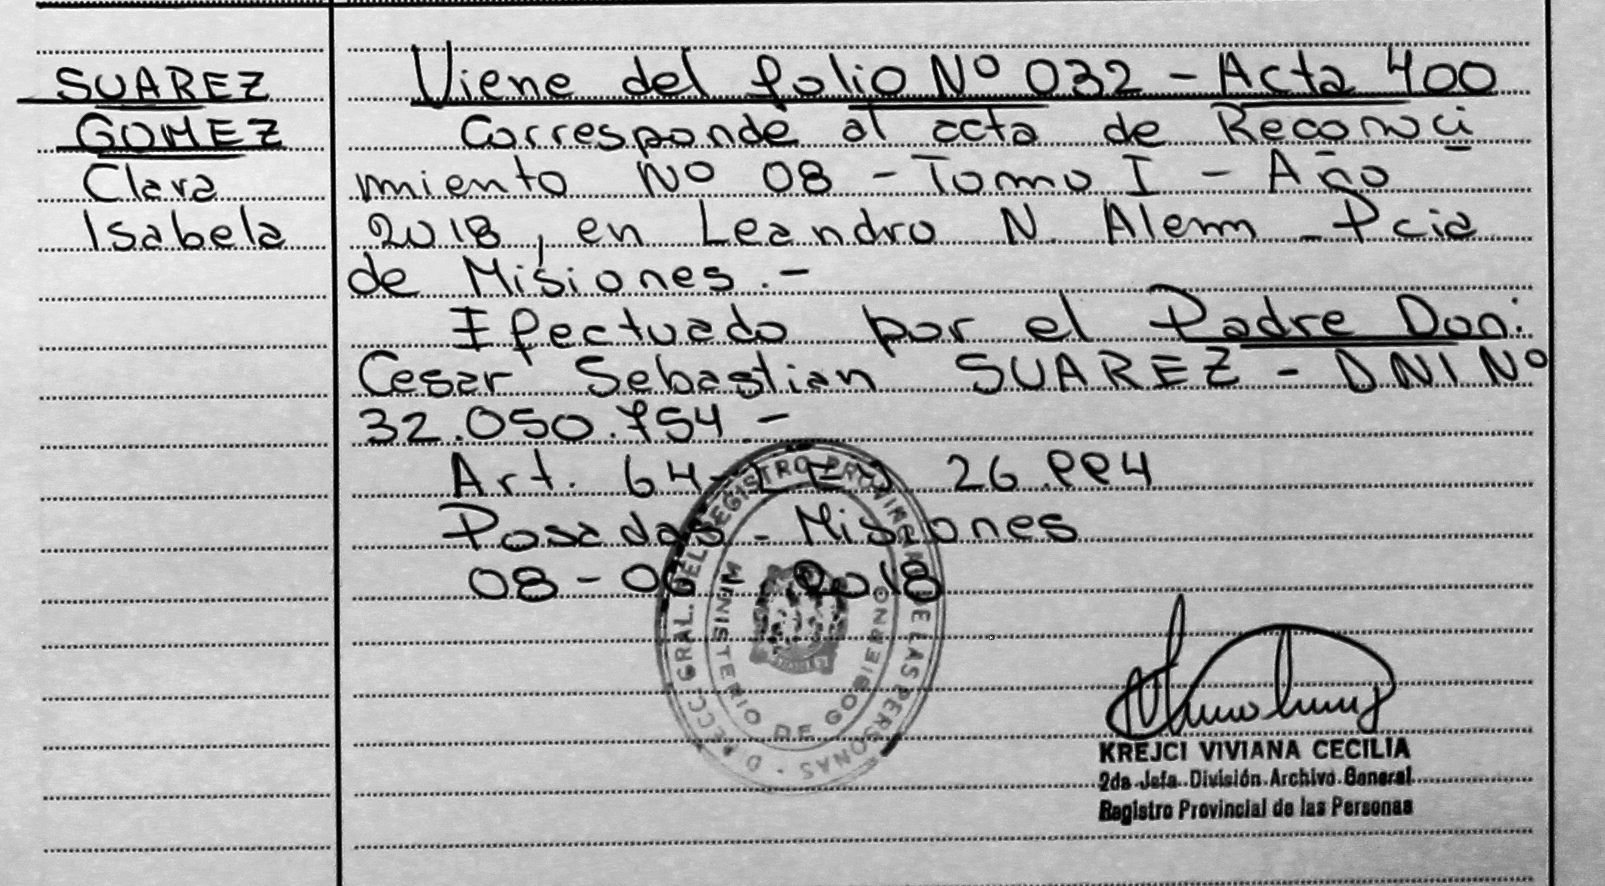 SUAREZ
GOMEZ
Clara
Isabela
Viene del folio Nº 032 - Acta 400
Corresponde al acta de Reconoci
miento Nº 08 - Tomo I - Año
2018, en Leandro N. Alem - Pcia
de Misiones.-
Efectuado por el Padre Don:
Cesar Sebastian SUAREZ - DNI Nº
32.050.754 -
Art. 64 - LEY 26.994
Posadas - Misiones
08-06-2018
DIRECC. GRAL. DEL REGISTRO PROVINCIAL DE LAS PERSONAS
MINISTERIO DE GOBIERNO
KREJCI VIVIANA CECILIA
2da Jefa División Archivo General
Registro Provincial de las Personas